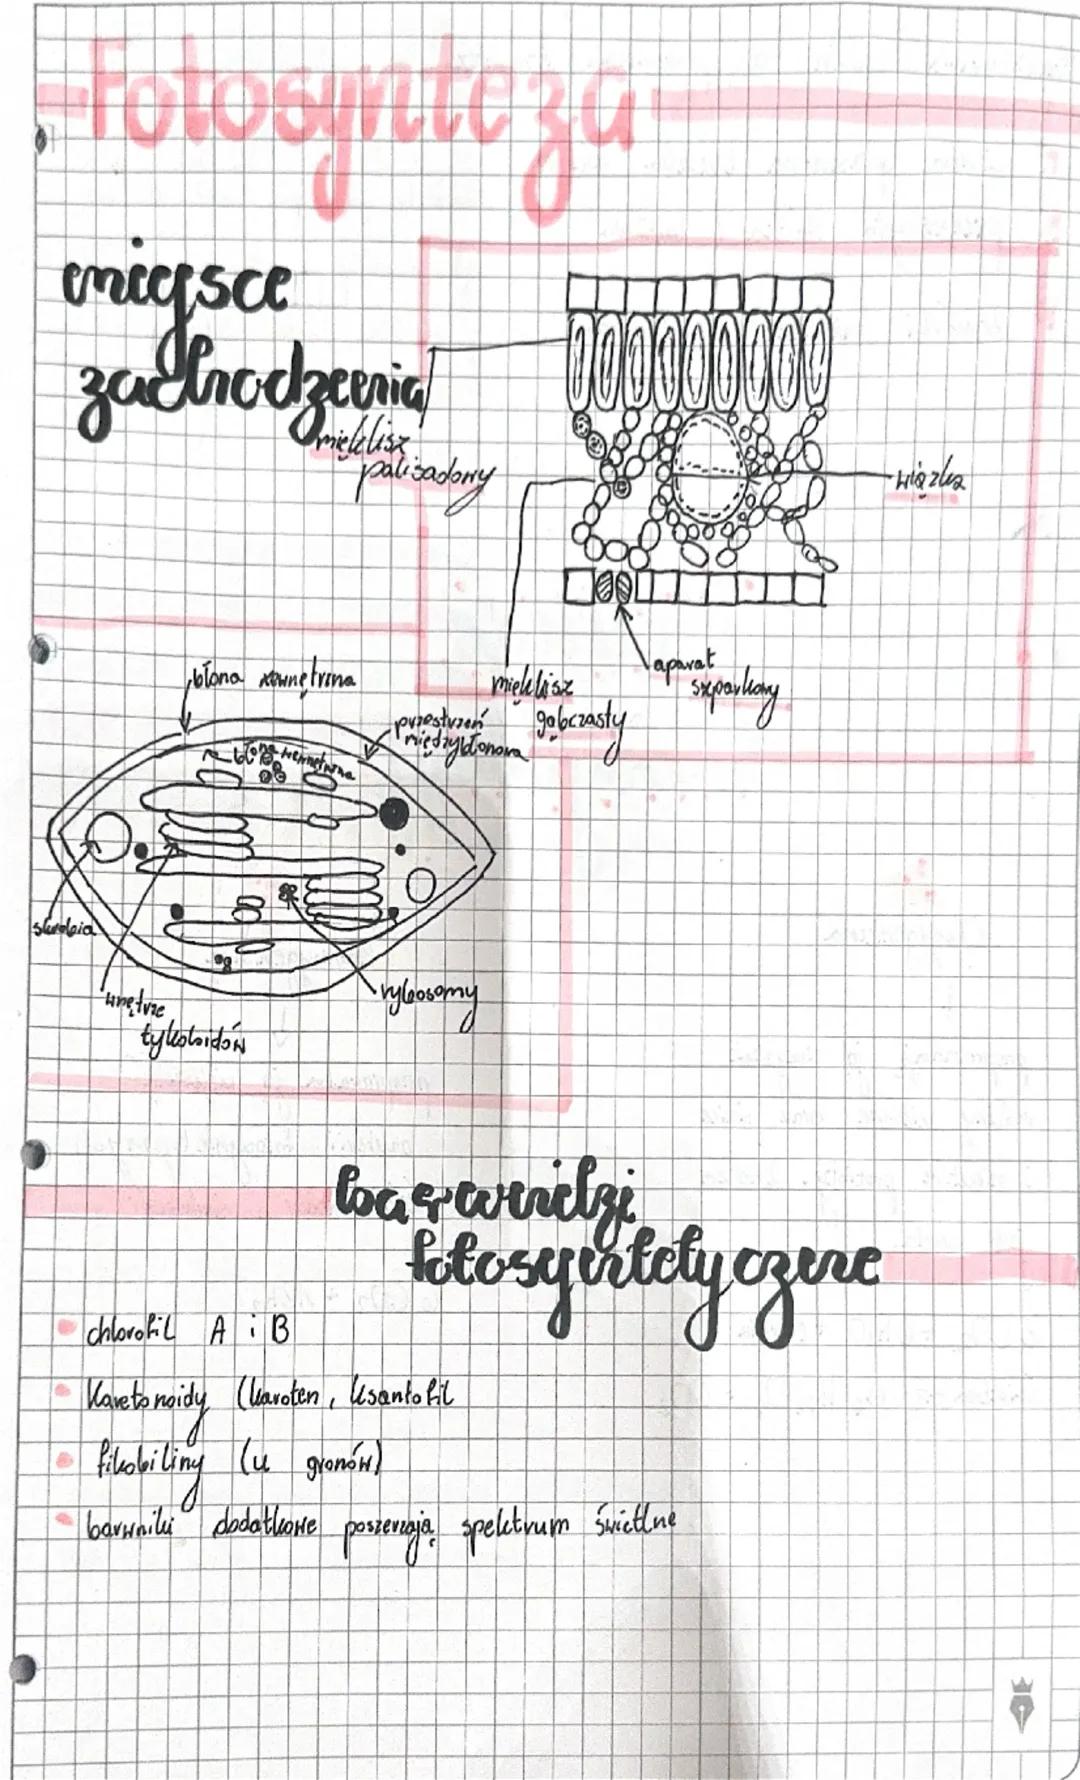 Fotosynteza
miejsce
zachodzenia
miękisz
palisadowy
wiązka
miękkisz
gąbczasty
aparat
szparkowy
błona zewnętrzna
błona wewnętrzna
przestrzeń
międzybłonowa
skrobia
wnętrze
tykoloidów
rybosomy
barwniki
fotosyntetyczne
chlorofil A i B
Karetonoidy (karoten, ksantofil
fikobiliny (u gronów)
barwniki dodatkowe poszerzają spektrum świetlne